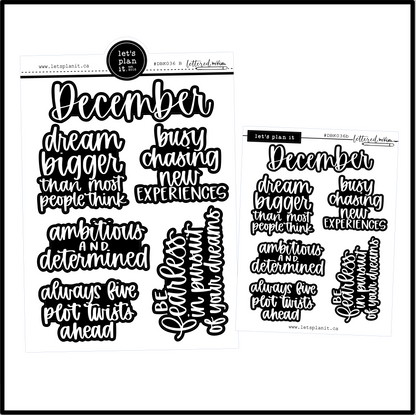 www.letsplanit.ca
let's
plan
it.
#DBK036 B
lettered.mom
December
dream
bigger
than most
people think
busy
chasing
new
EXPERIENCES
ambitious
AND
determined
BE
fearless
in pursuit
of your dreams
always five
plot twists
ahead
let's plan it
#DBK036b
lettered.mom
December
dream
bigger
than most
people think
busy
chasing
new
EXPERIENCES
ambitious
AND
determined
BE
fearless
in pursuit
of your dreams
always five
plot twists
ahead
www.letsplanit.ca